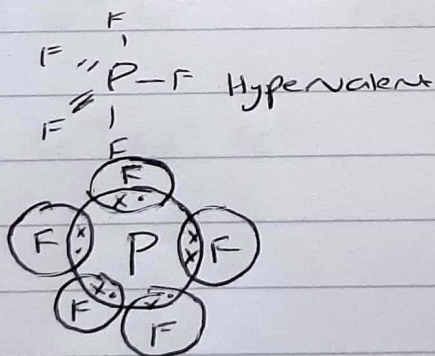 F
F P–F Hypervalent
F
F
F
F P F
F F